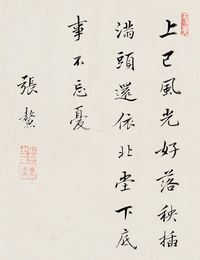 上巳風光好落秧插
滿頭還依北堂下底
事不忘憂
張鰲